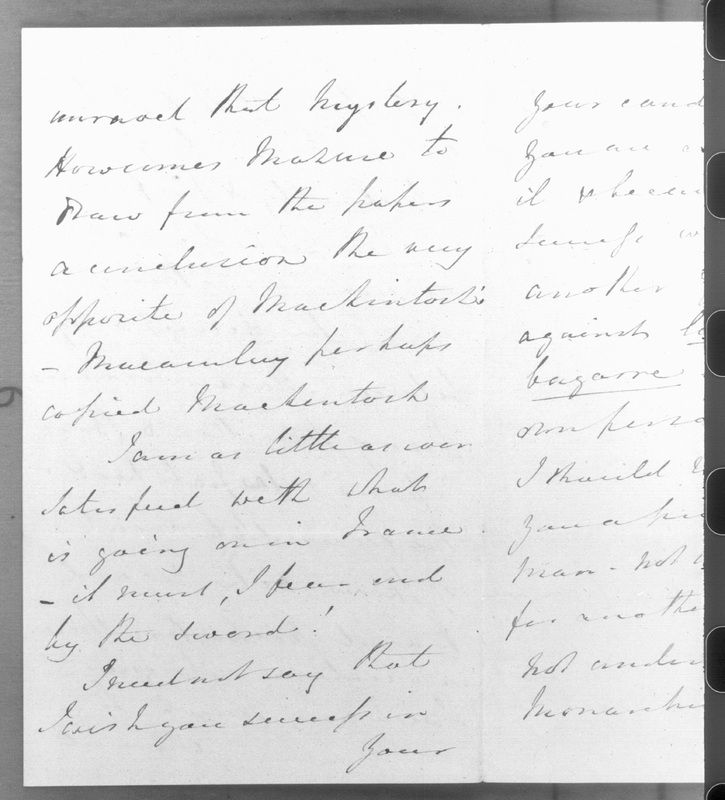 unravel that mystery.
How comes Mazure to
draw from the papers
a conclusion the very
opposite of Mackintosh's
- Macaulay perhaps
copied Mackintosh
I am as little as ever
satisfied with what
is going on in France
- it must, I fear end
by the sword!
I need not say that
I wish you success in
Your
Your cand
You are
it &
success
another
against
bagarre
own perso
I should
you a
man - not
for anothe
not under
Monarchi